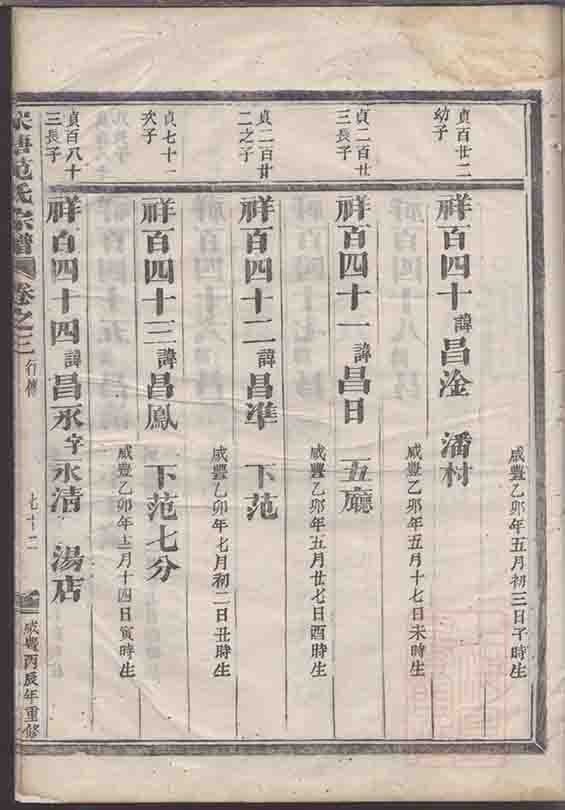 貞百廿二
幼子
祥百四十諱昌淦 潘村
咸豐乙卯年五月初三日子時生
貞二百廿
三長子
祥百四十一諱昌日 五廳
咸豐乙卯年五月十七日未時生
貞二百廿
二之子
祥百四十二諱昌準 下范
咸豐乙卯年五月廿七日酉時生
貞七十一
次子
祥百四十三諱昌鳳 下范七分
咸豐乙卯年七月初二日丑時生
貞百八十
三長子
祥百四十四諱昌永字永清 湯店
咸豐乙卯年十一月十四日寅時生
塘范氏宗譜 卷之三 行傳 七十二 咸豐丙辰年重修